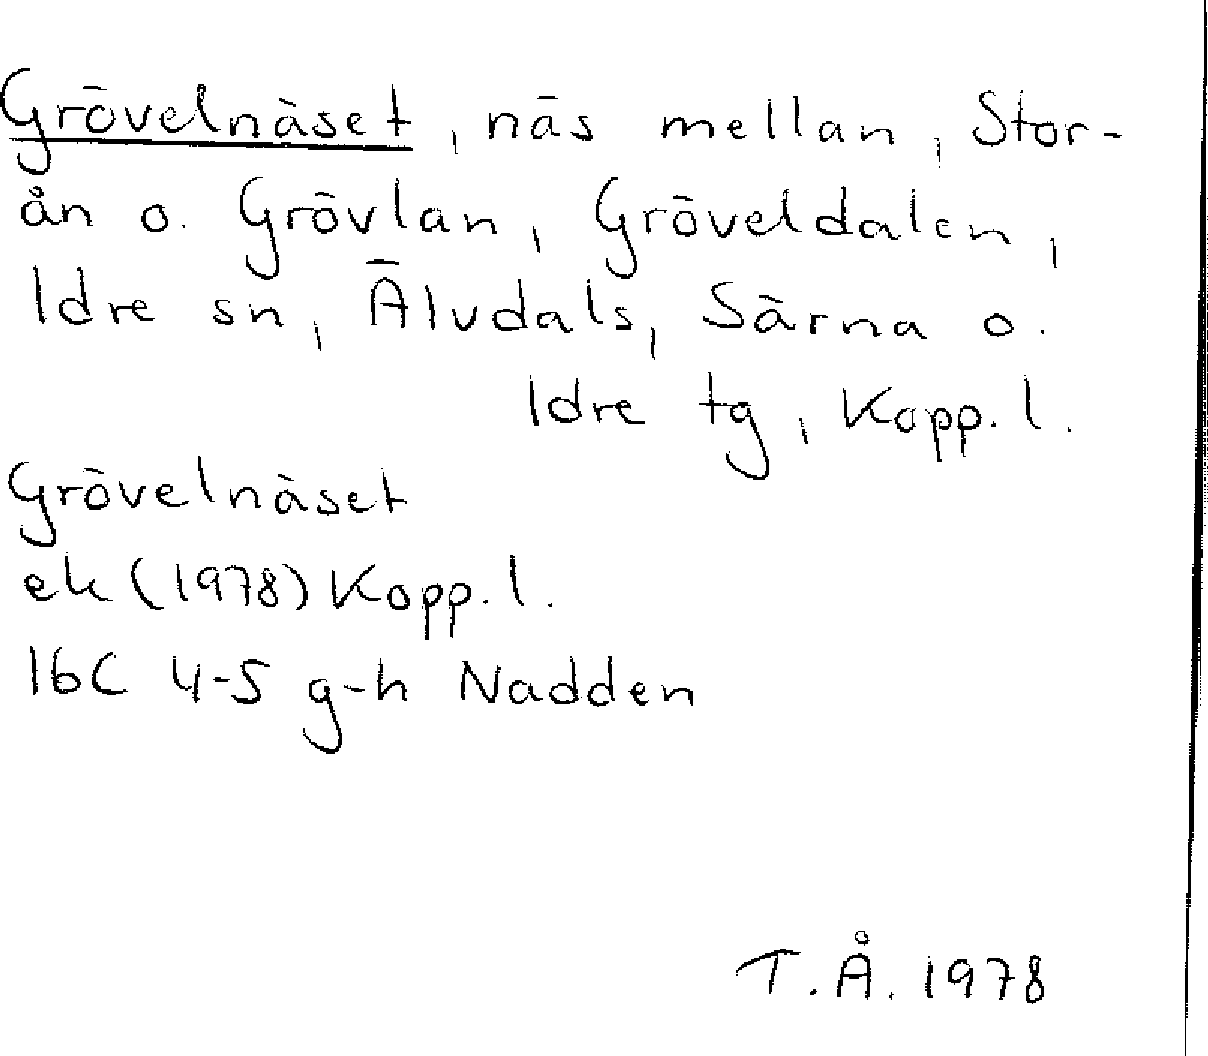 Grövelnäset, näs mellan, Stor-
ån o. Grövlan, Gröveldalen,
Idre sn, Älvdals, Särna o.
Idre tg, Kopp. l.
Grövelnäset
ek (1978) Kopp. l.
16C 4-5 g-h Nadden
T. Å. 1978